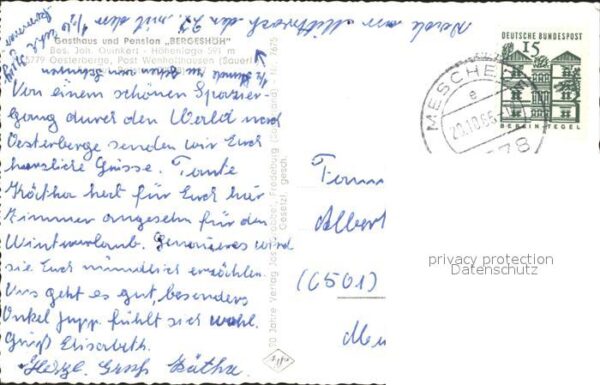 Gasthaus und Pension „BERGESHÖH“
Bes. Joh. Qunkert - Höhenlage 591 m
5779 Oesterberge, Post Wenholthausen (Sauerl
Von einem schönen Spazier-
gang durch den Wald nach
Oesterberge senden wir Euch
herzliche Grüsse. Tante
Käthe hat für Euch hier
Zimmer angesehn für den
Winterurlaub. Genaueres wird
sie Euch mündlich erzählen.
Uns geht es gut, besonders
Onkel Jupp fühlt sich wohl.
Gruß Elisabeth.
Herzl. Gruß Käthe
mit der
Nr. 7675
30 Jahre Verlag Jos. Fredeburg (Sauerland)
Gesetzl. gesch.
DEUTSCHE BUNDESPOST
15
BERLIN-TEGEL
MESCHE
e
20.10.66
578
Fam
Albert
(6501)
privacy protection
Datenschutz